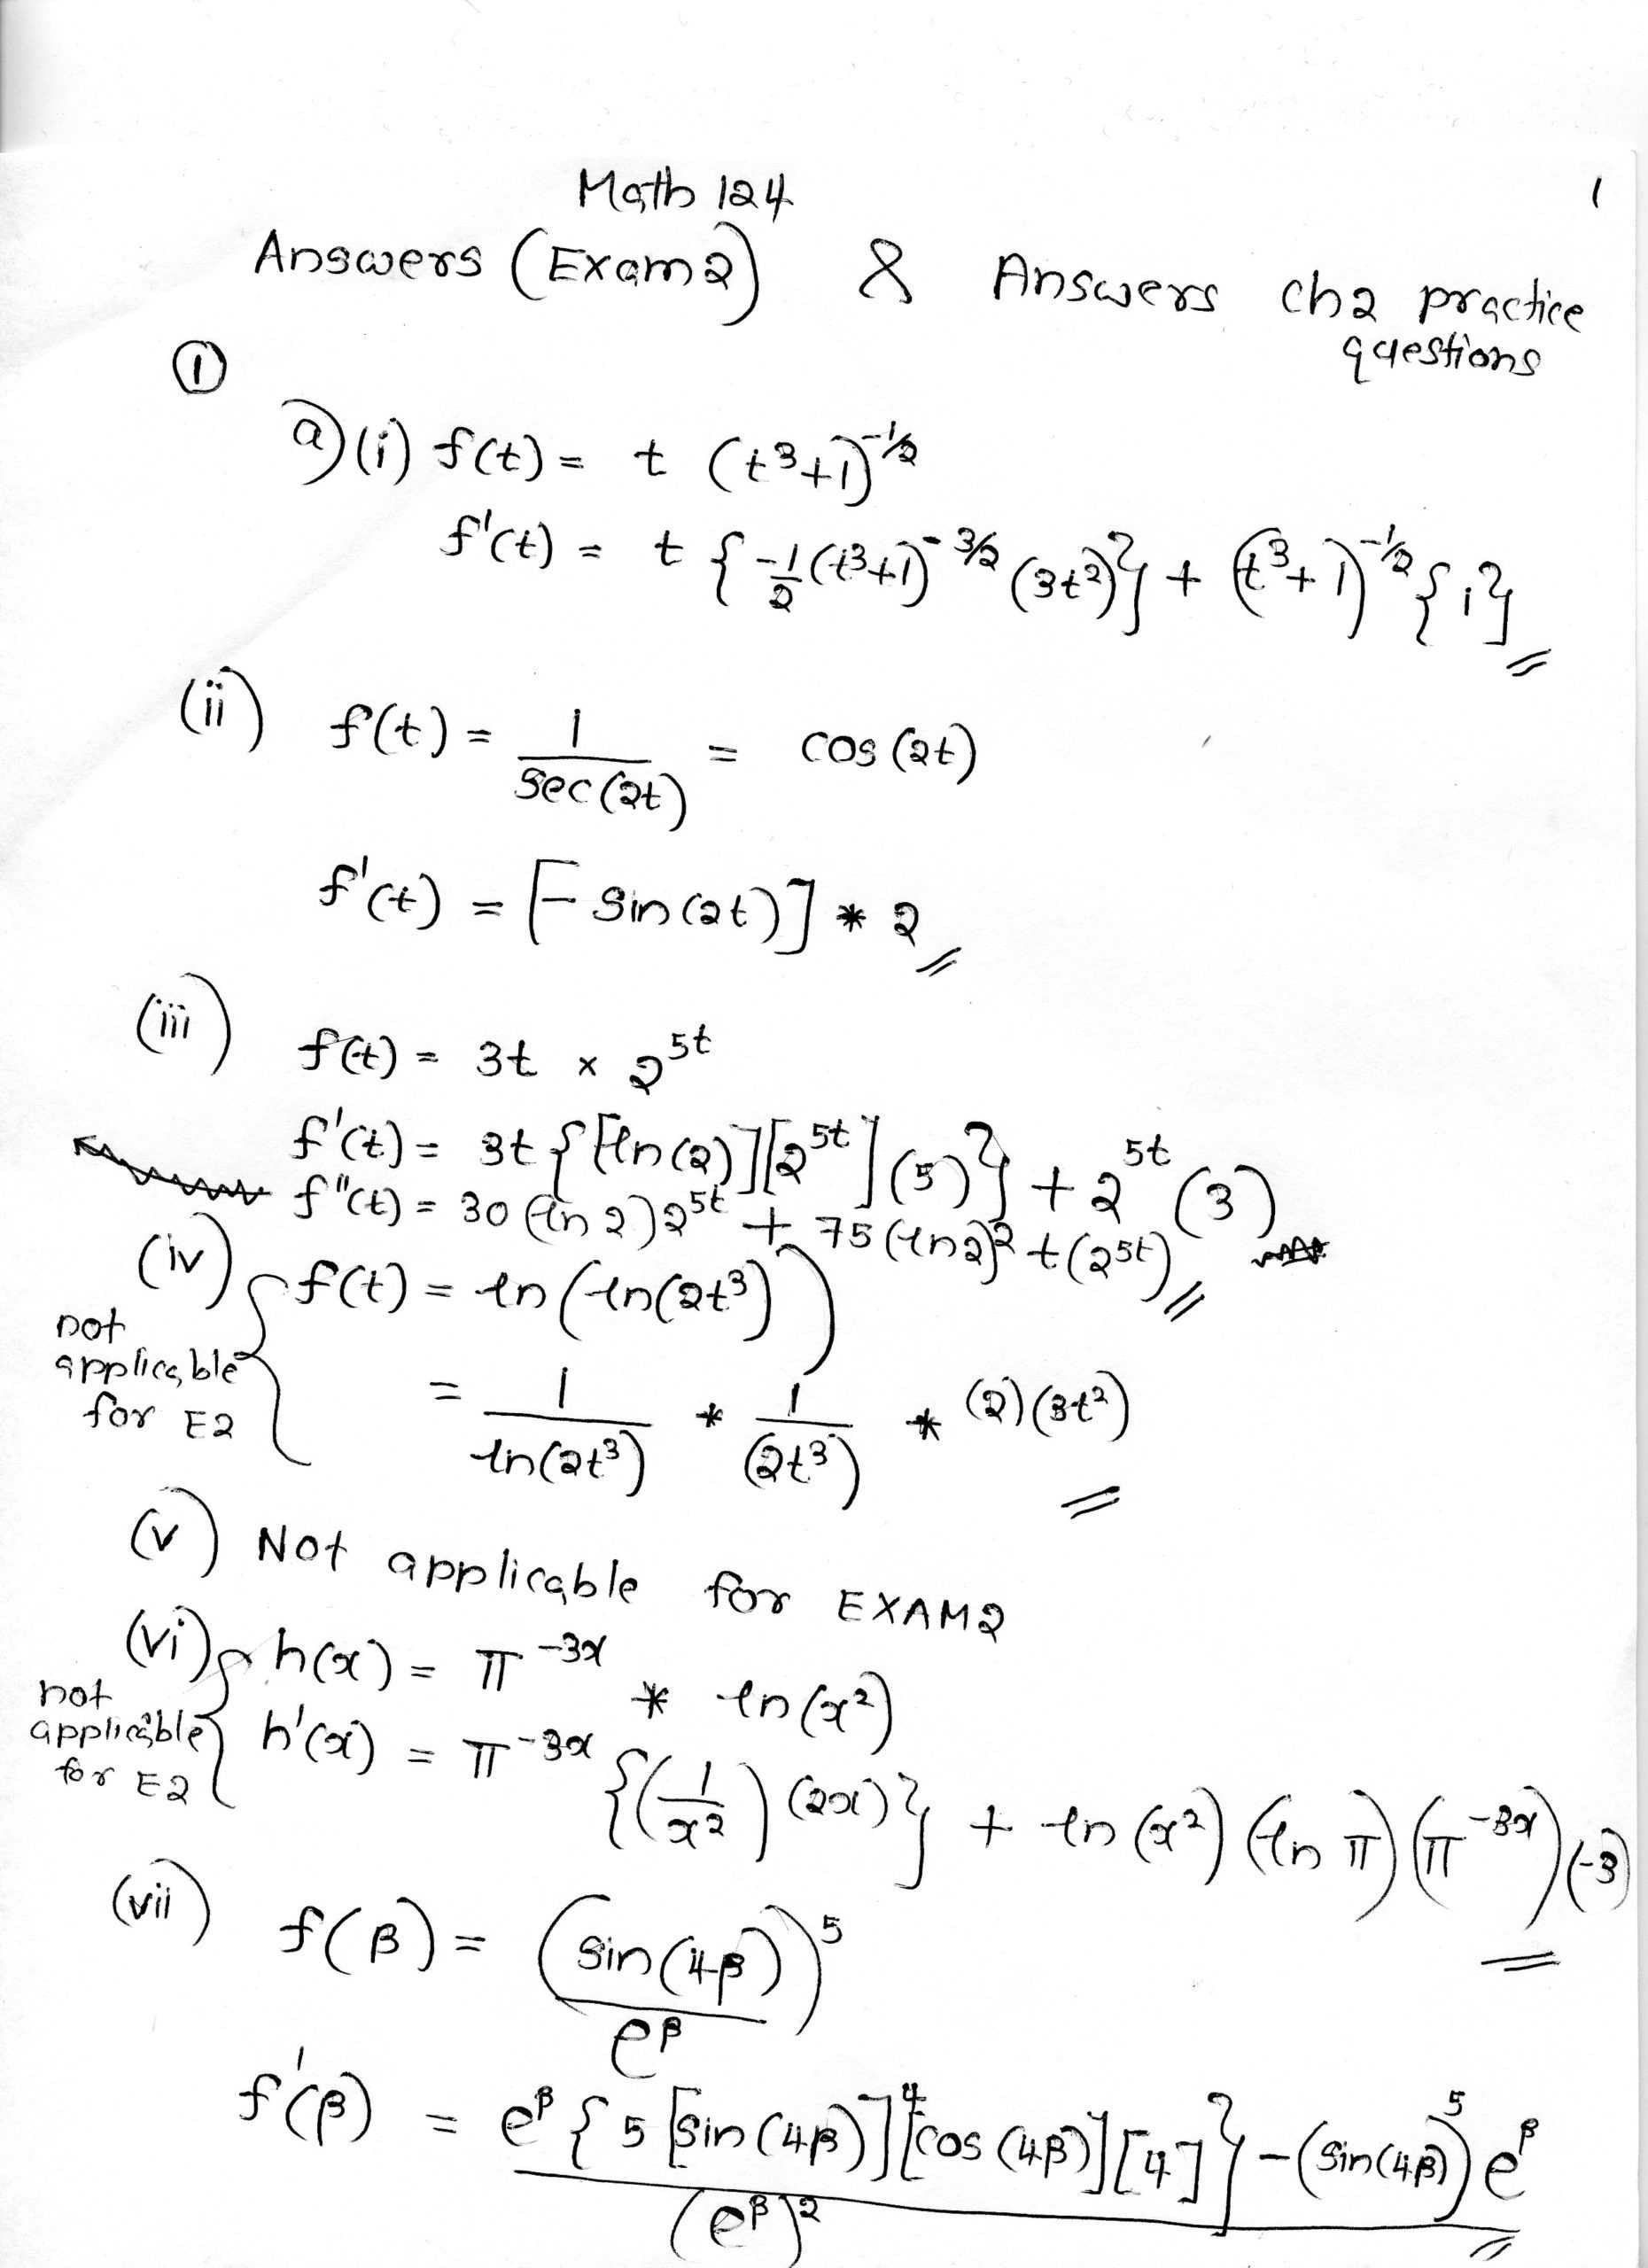 Math 124
1
Answers (Exam 2) & Answers ch2 practice questions
①
a) (i) f(t) = t (t³+1)^{-1/2}
f'(t) = t { -1/2 (t³+1)^{-3/2} (3t²)} + (t³+1)^{-1/2} {1}
(ii) f(t) = 1/sec(2t) = cos(2t)
f'(t) = [- sin(2t)] * 2
(iii) f(t) = 3t × 2^{5t}
f'(t) = 3t {[ln(2)][2^{5t}](5)} + 2^{5t} (3)
f''(t) = 30 (ln 2) 2^{5t} + 75 (ln 2)² t (2^{5t})
(iv) f(t) = ln(ln(2t³))
not applicable for E2
= 1/ln(2t³) * 1/(2t³) * (2)(3t²)
(v) Not applicable for EXAM2
(vi) h(x) = π^{-3x} * ln(x²)
not applicable for E2
h'(x) = π^{-3x} {(1/x²)(2x)} + ln(x²) (ln π) (π^{-3x}) (-3)
(vii) f(β) = (sin(4β))⁵ / e^β
f'(β) = e^β {5 [sin(4β)]⁴ [cos(4β)][4]} - (sin(4β))⁵ e^β / (e^β)²